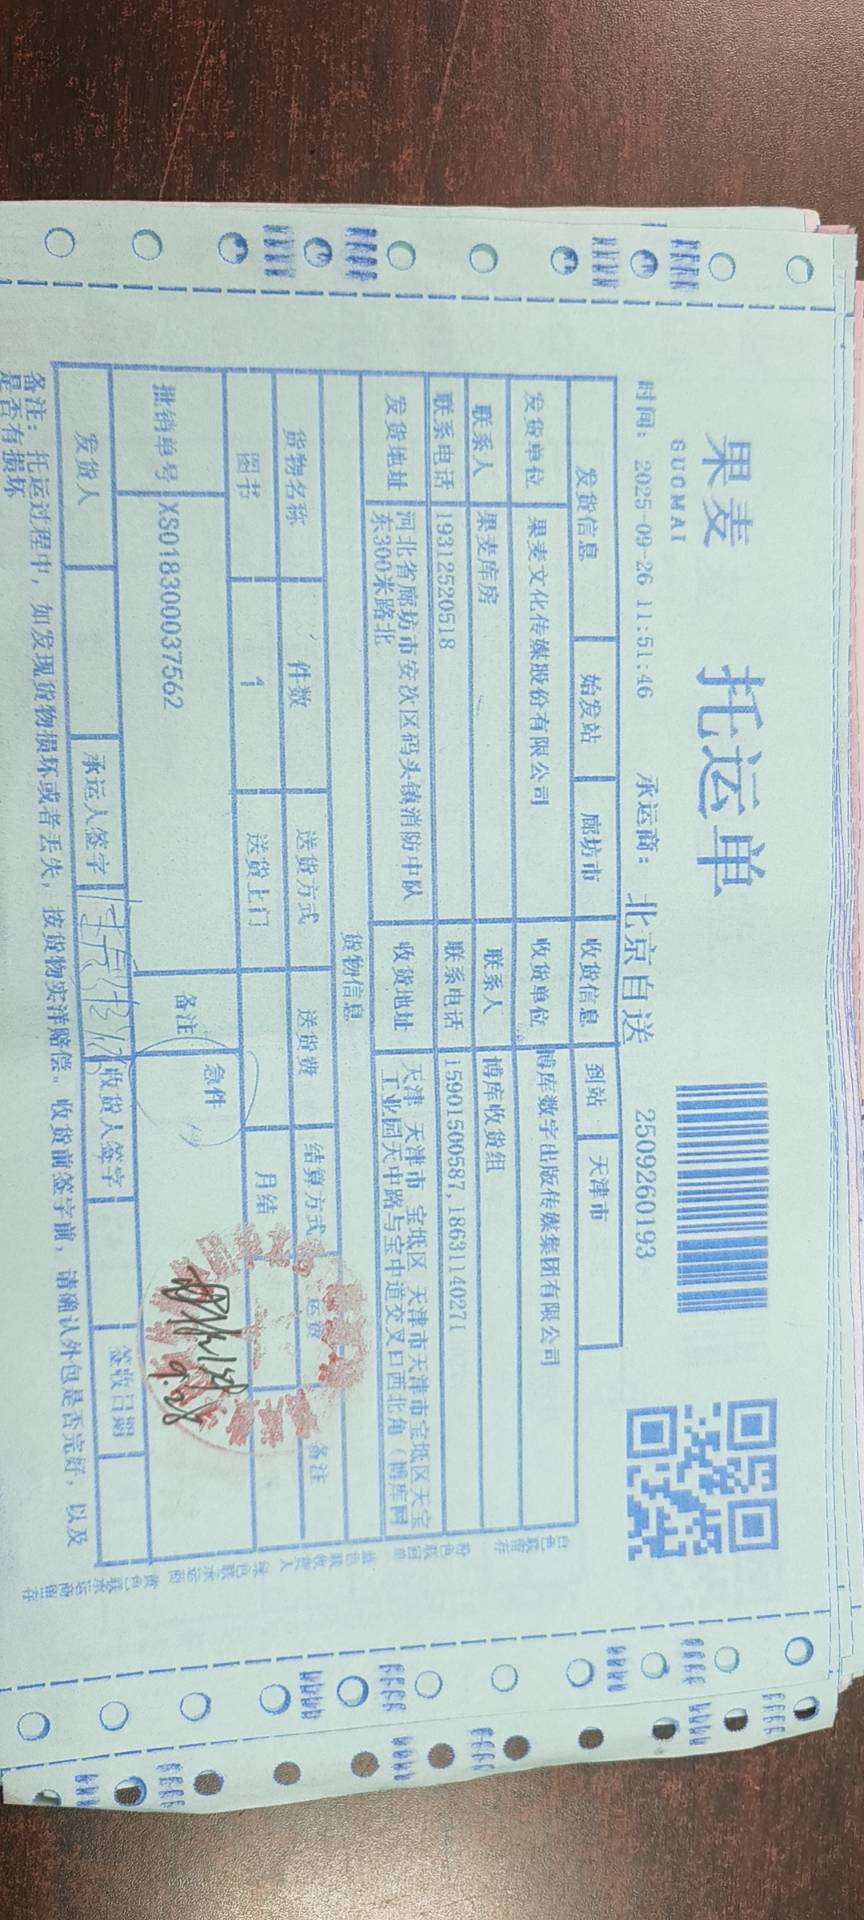 果麦
GUOMAI
托运单
时间：2025-09-26 11:51:46 承运商：北京自送 2509260193
发货信息 始发站 廊坊市 收货信息 到站 天津市
发货单位 果麦文化传媒股份有限公司 收货单位 博库数字出版传媒集团有限公司
联系人 果麦库房 联系人 博库收货组
联系电话 19312520518 联系电话 15901500587,18631140271
发货地址 河北省廊坊市安次区码头镇消防中队 收货地址 天津 天津市 宝坻区 天津市天津市宝坻区天宝
东300米路北 工业园天中路与宝中道交叉口西北角（博库网
货物信息
货物名称 件数 送货方式 送货费 结算方式 运费 备注
图书 1 送货上门 月结
批销单号 XS018300037562 备注 急件
发货人 承运人签字 收货人签字 签收日期
备注：托运过程中，如发现货物损坏或者丢失，按货物实洋赔偿。收货前签字前，请确认外包是否完好，以及
是否有损坏
白色联留存 粉色联回单 蓝色联收货人 绿色联承运商 黄色联承运商留存